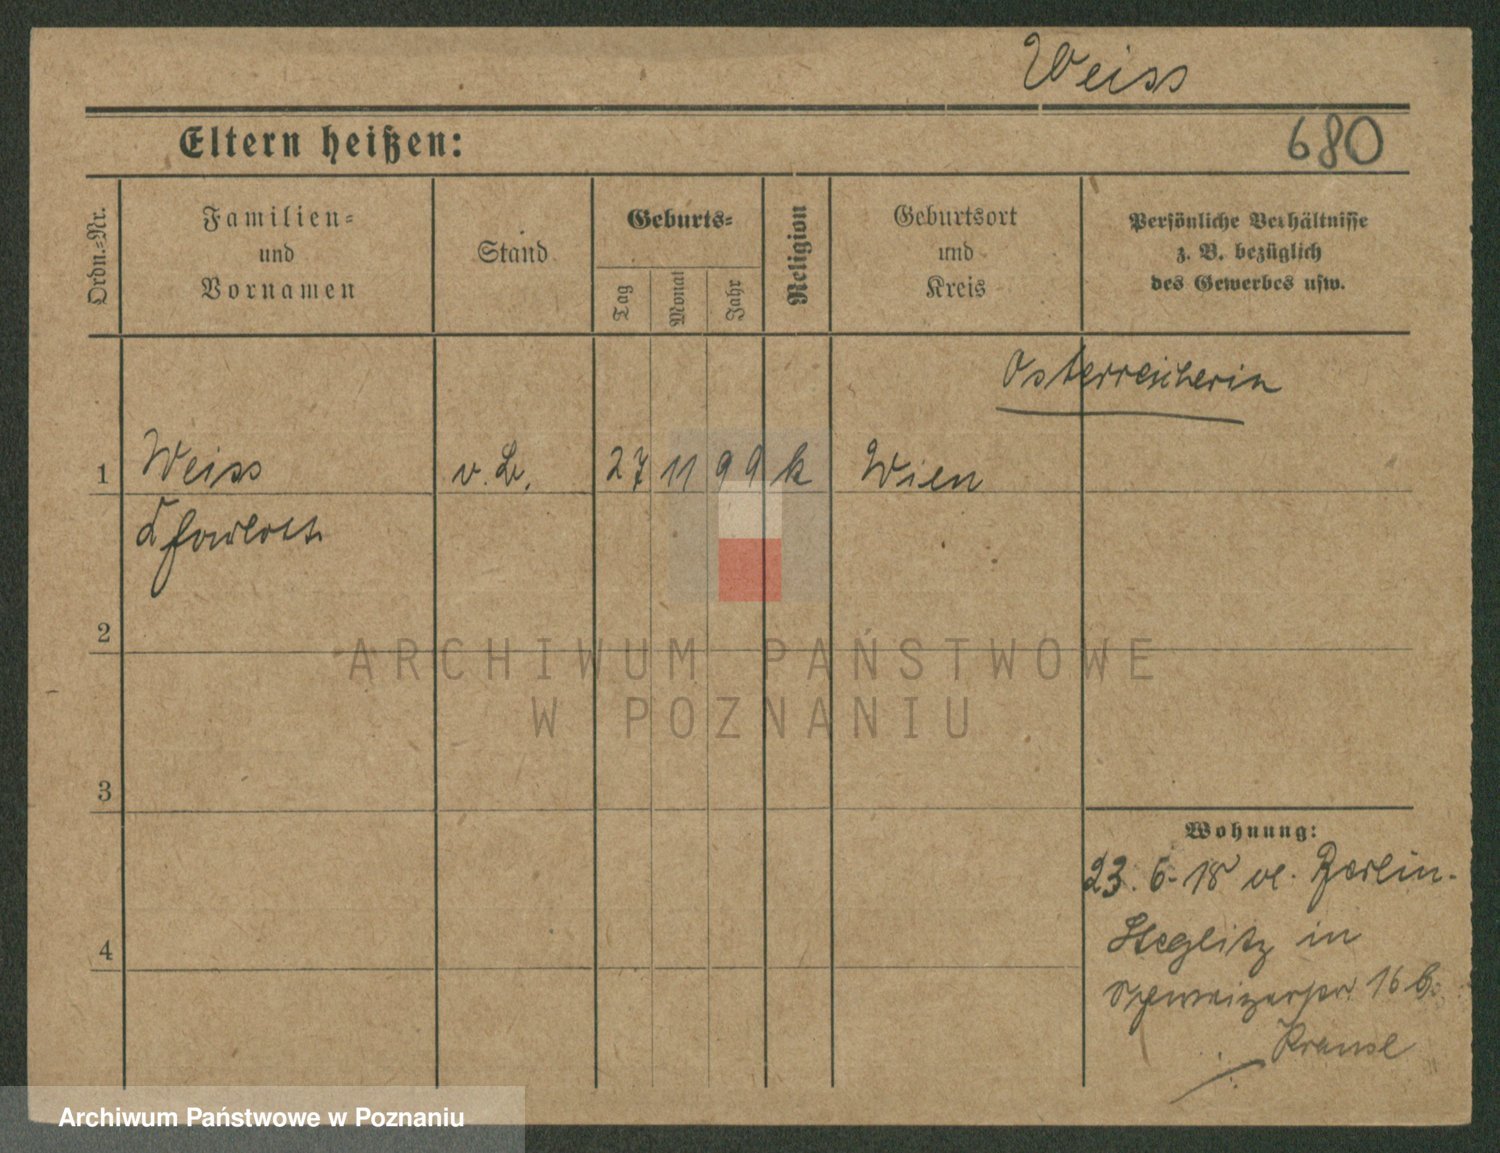 Weiss
Eltern heißen:
680
Ordn.=Nr.
Familien=
und
Vornamen
Stand
Geburts=
Tag
Monat
Jahr
Religion
Geburtsort
und
Kreis
Persönliche Verhältnisse
z. B. bezüglich
des Gewerbes usw.
Österreicherin
1 Weiss v. B. 27 11 99 k Wien
Charlotte
2
ARCHIWUM PAŃSTWOWE
W POZNANIU
3
Wohnung:
23. 6. 18 Berlin-
Steglitz in
4
16 b.
Krause
Archiwum Państwowe w Poznaniu